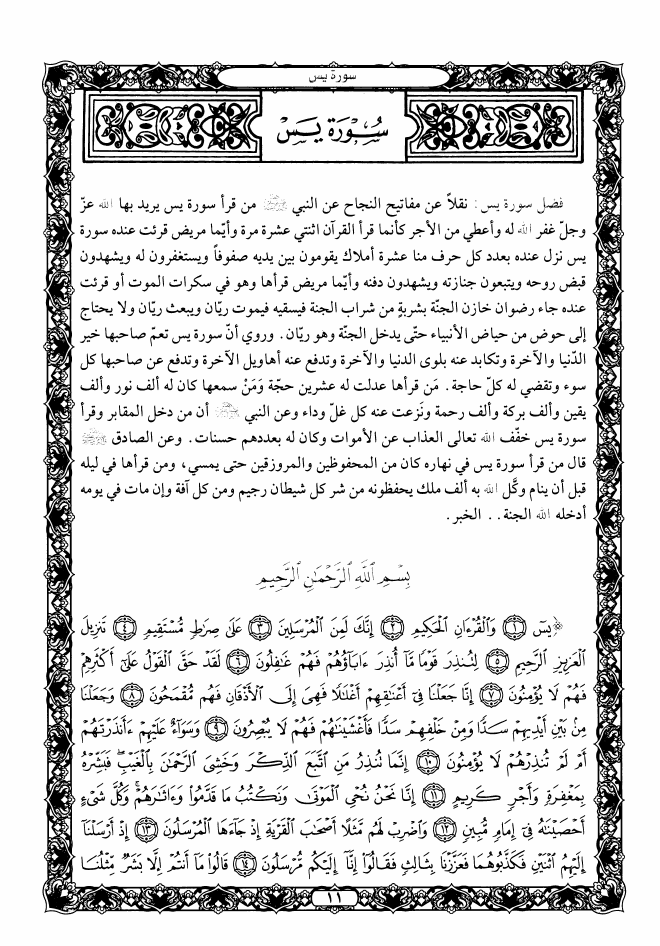 سورة يس
سُورَة يسَ
فضل سورة يس: نقلاً عن مفاتيح النجاح عن النبي ﷺ من قرأ سورة يس يريد بها الله عزّ
وجلّ غفر الله له وأعطي من الأجر كأنما قرأ القرآن اثنتي عشرة مرة وأيّما مريض قرئت عنده سورة
يس نزل عنده بعدد كل حرف منا عشرة أملاك يقومون بين يديه صفوفاً ويستغفرون له ويشهدون
قبض روحه ويتبعون جنازته ويشهدون دفنه وأيّما مريض قرأها وهو في سكرات الموت أو قرئت
عنده جاء رضوان خازن الجنّة بشربةٍ من شراب الجنة فيسقيه فيموت ريّان ويبعث ريّان ولا يحتاج
إلى حوض من حياض الأنبياء حتّى يدخل الجنّة وهو ريّان. وروي أنّ سورة يس تعمّ صاحبها خير
الدّنيا والآخرة وتكابد عنه بلوى الدنيا والآخرة وتدفع عنه أهاويل الآخرة وتدفع عن صاحبها كل
سوء وتقضي له كلّ حاجة. مَن قرأها عدلت له عشرين حجّة وَمَنْ سمعها كان له ألف نور وألف
يقين وألف بركة وألف رحمة ونَزعت عنه كل غلّ وداء وعن النبي ﷺ أن من دخل المقابر وقرأ
سورة يس خفّف الله تعالى العذاب عن الأموات وكان له بعددهم حسنات. وعن الصادق
قال من قرأ سورة يس في نهاره كان من المحفوظين والمروزقين حتى يمسيء ومن قرأها في ليله
قبل أن ينام وكَّل الله به ألف ملك يحفظونه من شر كل شيطان رجيم ومن كل آفة وإن مات في يومه
أدخله الله الجنة.. الخبر.
بِسْمِ اللَّهِ الرَّحْمَٰنِ الرَّحِيمِ
﴿يسٓ ١ وَٱلْقُرْءَانِ ٱلْحَكِيمِ ٢ إِنَّكَ لَمِنَ ٱلْمُرْسَلِينَ ٣ عَلَىٰ صِرَٰطٍ مُّسْتَقِيمٍ ٤ تَنزِيلَ
ٱلْعَزِيزِ ٱلرَّحِيمِ ٥ لِتُنذِرَ قَوْمًا مَّآ أُنذِرَ ءَابَآؤُهُمْ فَهُمْ غَٰفِلُونَ ٦ لَقَدْ حَقَّ ٱلْقَوْلُ عَلَىٰٓ أَكْثَرِهِمْ
فَهُمْ لَا يُؤْمِنُونَ ٧ إِنَّا جَعَلْنَا فِىٓ أَعْنَٰقِهِمْ أَغْلَٰلًا فَهِىَ إِلَى ٱلْأَذْقَانِ فَهُم مُّقْمَحُونَ ٨ وَجَعَلْنَا
مِنۢ بَيْنِ أَيْدِيهِمْ سَدًّا وَمِنْ خَلْفِهِمْ سَدًّا فَأَغْشَيْنَٰهُمْ فَهُمْ لَا يُبْصِرُونَ ٩ وَسَوَآءٌ عَلَيْهِمْ ءَأَنذَرْتَهُمْ
أَمْ لَمْ تُنذِرْهُمْ لَا يُؤْمِنُونَ ١٠ إِنَّمَا تُنذِرُ مَنِ ٱتَّبَعَ ٱلذِّكْرَ وَخَشِىَ ٱلرَّحْمَٰنَ بِٱلْغَيْبِ ۖ فَبَشِّرْهُ
بِمَغْفِرَةٍ وَأَجْرٍ كَرِيمٍ ١١ إِنَّا نَحْنُ نُحْىِ ٱلْمَوْتَىٰ وَنَكْتُبُ مَا قَدَّمُوا۟ وَءَاثَٰرَهُمْ ۚ وَكُلَّ شَىْءٍ
أَحْصَيْنَٰهُ فِىٓ إِمَامٍ مُّبِينٍ ١٢ وَٱضْرِبْ لَهُم مَّثَلًا أَصْحَٰبَ ٱلْقَرْيَةِ إِذْ جَآءَهَا ٱلْمُرْسَلُونَ ١٣ إِذْ أَرْسَلْنَآ
إِلَيْهِمُ ٱثْنَيْنِ فَكَذَّبُوهُمَا فَعَزَّزْنَا بِثَالِثٍ فَقَالُوٓا۟ إِنَّآ إِلَيْكُم مُّرْسَلُونَ ١٤ قَالُوا۟ مَآ أَنتُمْ إِلَّا بَشَرٌ مِّثْلُنَا
١١